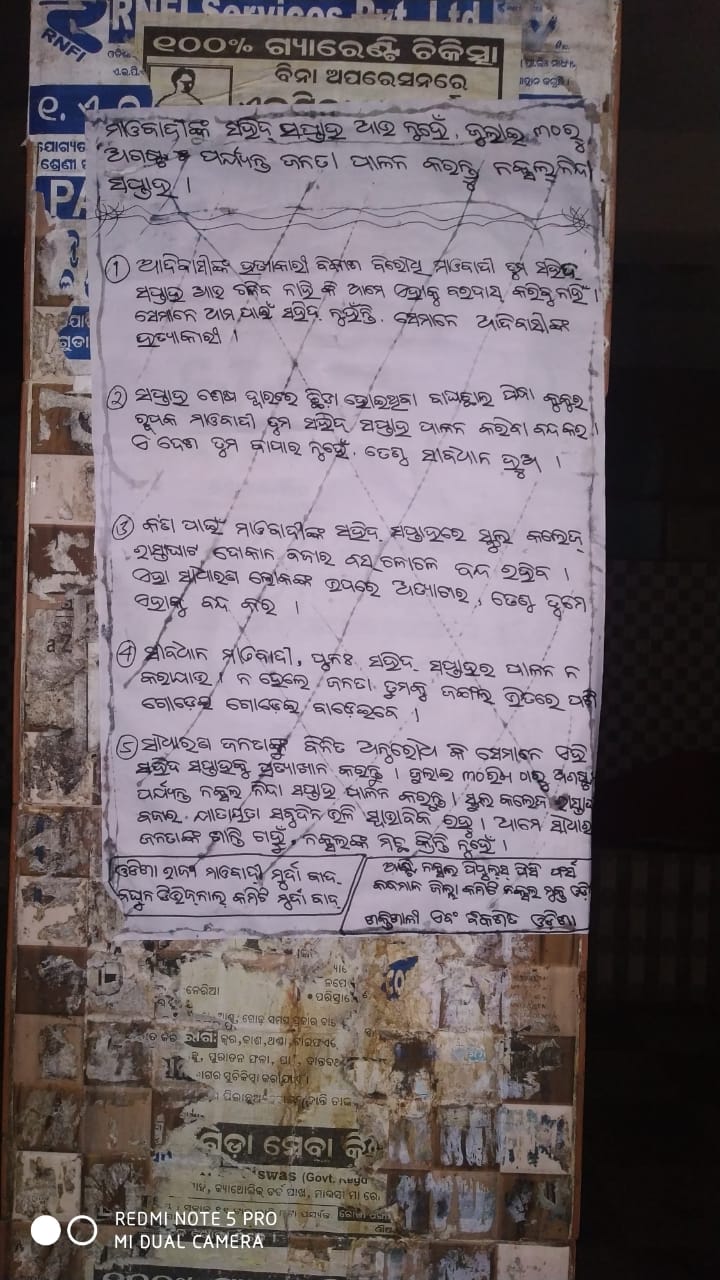 RNFI Services Pvt. Ltd
RNFI
୧୦୦% ଗ୍ୟାରେଣ୍ଟି ଚିକିତ୍ସା
ବିନା ଅପରେସନରେ
ମାଓବାଦୀଙ୍କ ସହିଦ୍ ସପ୍ତାହ ଆଉ ନୁହେଁ, ଜୁଲାଇ ୩୦ରୁ
ଅଗଷ୍ଟ ପର୍ଯ୍ୟନ୍ତ ଜନତା ପାଳନ କରନ୍ତୁ ନକ୍ସଲ ନିନ୍ଦା
ସପ୍ତାହ ।
① ଆଦିବାସୀଙ୍କ ହତ୍ୟାକାରୀ ବିକାଶ ବିରୋଧି ମାଓବାଦୀ ତୁମ ସହିଦ
ସପ୍ତାହ ଆଉ ଚଳିବ ନାହିଁ କି ଆମେ ଏହାକୁ ବରଦାସ୍ତ କରିବୁ ନାହିଁ ।
ସେମାନେ ଆମ ପାଇଁ ସହିଦ ନୁହଁନ୍ତି, ସେମାନେ ଆଦିବାସୀଙ୍କ
ହତ୍ୟାକାରୀ ।
② ସପ୍ତାହ ଶେଷ ଦ୍ୱାରରେ ଛିଡ଼ା ହୋଇଥିବା ବାଘଛାଲ ପିନ୍ଧା କୁକୁର
ରୂପକ ମାଓବାଦୀ ତୁମ ସହିଦ ସପ୍ତାହ ପାଳନ କରିବା ବନ୍ଦ କର ।
ଏ ଦେଶ ତୁମ ବାପାର ନୁହେଁ, ତେଣୁ ସାବଧାନ ହୁଅ ।
③ କାହା ପାଇଁ ମାଓବାଦୀଙ୍କ ସହିଦ ସପ୍ତାହରେ ସ୍କୁଲ କଲେଜ୍
ରାସ୍ତାଘାଟ ଦୋକାନ ବଜାର ବସ୍ ଚଳାଚଳ ବନ୍ଦ ରହିବ ।
ଏହା ସାଧାରଣ ଲୋକଙ୍କ ଉପରେ ଅତ୍ୟାଚାର, ତେଣୁ ତୁମେ
ଏହାକୁ ବନ୍ଦ କର ।
④ ସାବଧାନ ମାଓବାଦୀ, ପୁନଃ ସହିଦ ସପ୍ତାହର ପାଳନ ନ
କରାଯାଉ । ନ ହେଲେ ଜନତା ତୁମକୁ ଜଙ୍ଗଲ ଭିତରେ ପଶି
ଗୋଡ଼େଇ ଗୋଡ଼େଇ ବାଡ଼େଇବେ ।
⑤ ସାଧାରଣ ଜନତାଙ୍କୁ ବିନିତ ଅନୁରୋଧ କି ସେମାନେ ଏହି
ସହିଦ ସପ୍ତାହକୁ ପ୍ରତ୍ୟାଖାନ କରନ୍ତୁ । ଜୁଲାଇ ୩୦ରିଖ ଠାରୁ ଅଗଷ୍ଟ
ପର୍ଯ୍ୟନ୍ତ ନକ୍ସଲ ନିନ୍ଦା ସପ୍ତାହ ପାଳନ କରନ୍ତୁ । ସ୍କୁଲ କଲେଜ ରାସ୍ତା
ବଜାର ଯାତାୟାତ ସବୁଦିନ ଭଳି ସ୍ୱାଭାବିକ ରହୁ । ଆମେ ସାଧାର
ଜନତାଙ୍କ ଶାନ୍ତି ଚାହୁଁ, ନକ୍ସଲଙ୍କ ମିଛ କ୍ରାନ୍ତି ନୁହେଁ ।
ଓଡିଶା ରାଜ୍ୟ ମାଓବାଦୀ ମୁର୍ଦ୍ଦା ବାଦ୍
ଡିଭିଜନାଲ୍ କମିଟି ମୁର୍ଦ୍ଦା ବାଦ୍
ଆଣ୍ଟି ନକ୍ସଲ ପିପୁଲ୍ସ୍ ପିସ୍ ଫୋର୍ସ
କନ୍ଧମାଳ ଜିଲ୍ଲା କମିଟି ନକ୍ସଲ ମୁକ୍ତ
ଶକ୍ତିଶାଳୀ ଏବଂ ବିକଶିତ ଓଡ଼ିଶା
ନେରିଆ
• ପରିସ୍ରା
ଜ୍ୱର, କାଶ, ଥଣ୍ଡା, ଟାଇଫଏଡ
ପୁରାତନ ଫଳା
ସେବା
swas (Govt. Regd
କ୍ୟାଥୋଲିକ୍ ଚର୍ଚ୍ଚ ପାଖ, ମାଉସୀ ମା ରୋ
REDMI NOTE 5 PRO
MI DUAL CAMERA